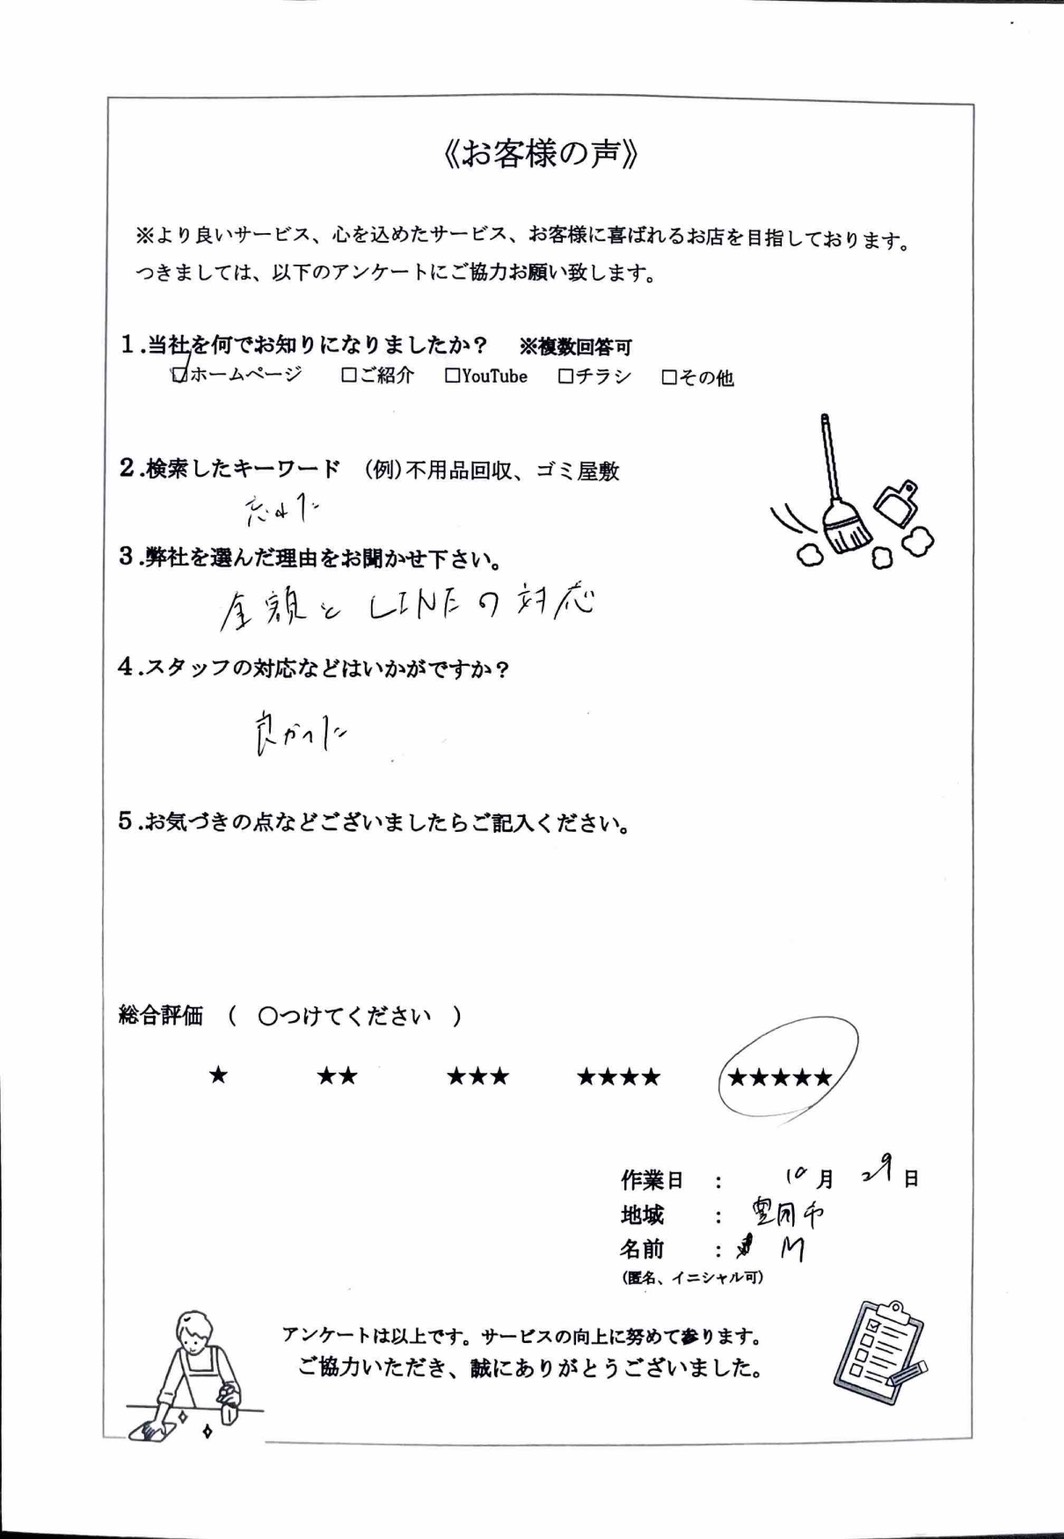 《お客様の声》
※より良いサービス、心を込めたサービス、お客様に喜ばれるお店を目指しております。
つきましては、以下のアンケートにご協力お願い致します。
1.当社を何でお知りになりましたか？ ※複数回答可
☑ホームページ □ご紹介 □YouTube □チラシ □その他
2.検索したキーワード （例）不用品回収、ゴミ屋敷
忘れた
3.弊社を選んだ理由をお聞かせ下さい。
金額と LINEの対応
4.スタッフの対応などはいかがですか？
良かった
5.お気づきの点などございましたらご記入ください。
総合評価 （ ○つけてください ）
★ ★★ ★★★ ★★★★ ★★★★★
作業日 ： 10月 29日
地域 ： 豊岡市
名前 ： M
（匿名、イニシャル可）
アンケートは以上です。サービスの向上に努めて参ります。
ご協力いただき、誠にありがとうございました。